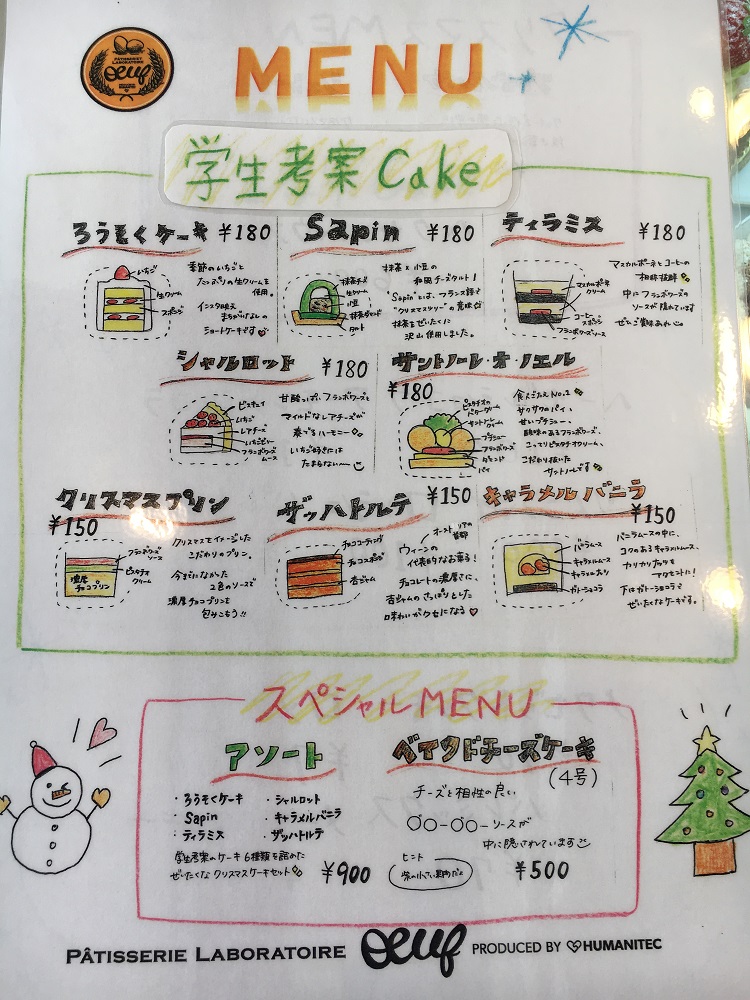 PATISSERIE LABORATOIRE
oeuf
MENU
学生考案 Cake
ろうそくケーキ ¥180
いちご
生クリーム
スポンジ
季節のいちごと
たっぷりの生クリームを
使用。
インスタ映え
まちがいなしの
ショートケーキです
Sapin ¥180
抹茶チーズ
生クリーム
小豆
抹茶ダマンド
タルト
抹茶×小豆の
和風チーズタルト!
"Sapin"とは、フランス語で
"クリスマスツリー"の意味
抹茶をぜいたくに
沢山使用しました。
ティラミス ¥180
マスカルポーネ
クリーム
コーヒー
スポンジ
フランボワーズソース
マスカルポーネとコーヒーの
相性抜群
中にフランボワーズの
ソースが隠れています
ぜひご賞味あれ
シャルロット ¥180
ビスキュイ
いちご
レアチーズ
いちごゼリー
フランボワーズ
ムース
甘酸っぱいフランボワーズと
マイルドなレアチーズが
奏でるハーモニー
いちご好きには
たまらない〜
サントノーレ・オ・ノエル
¥180
ピスタチオの
バタークリーム
サントノー
クリーム
プチシュー
フランボワーズ
ダマンド
パイ
食べごたえNo.1
サクサクのパイ、
甘いプチシュー、
酸味のあるフランボワーズ、
こってりピスタチオクリーム、
こだわり抜いた
サントノーレです
クリスマスプリン
¥150
フランボワーズ
ソース
ピスタチオ
クリーム
濃厚
チョコプリン
クリスマスをイメージした
こだわりのプリン。
今までになかった
2色のソースで
濃厚チョコプリンを
包みこもう!!
ザッハトルテ ¥150
チョココーティング
チョコスポンジ
杏ジャム
オーストリアの
首都
ウィーンの
代表的なお菓子!
チョコレートの濃厚さに、
杏ジャムのさっぱりとした
味わいがクセになる♥
キャラメルバニラ
¥150
バニラムース
キャラメルムース
キャラメルナッツ
ガトーショコラ
バニラムースの中に、
コクのあるキャラメルムース、
カリカリナッツを
アクセントに!
下はガトーショコラで
ぜいたくなケーキです。
スペシャルMENU
アソート
・ろうそくケーキ ・シャルロット
・Sapin ・キャラメルバニラ
・ティラミス ・ザッハトルテ
学生考案のケーキ6種類を詰めた
ぜいたくなクリスマスケーキセット
¥900
ベイクドチーズケーキ
(4号)
チーズと相性の良い
○○-○○-ソースが
中に隠されています
ヒント
紫の小さい果肉だよ
¥500
PÂTISSERIE LABORATOIRE oeuf PRODUCED BY HUMANITEC